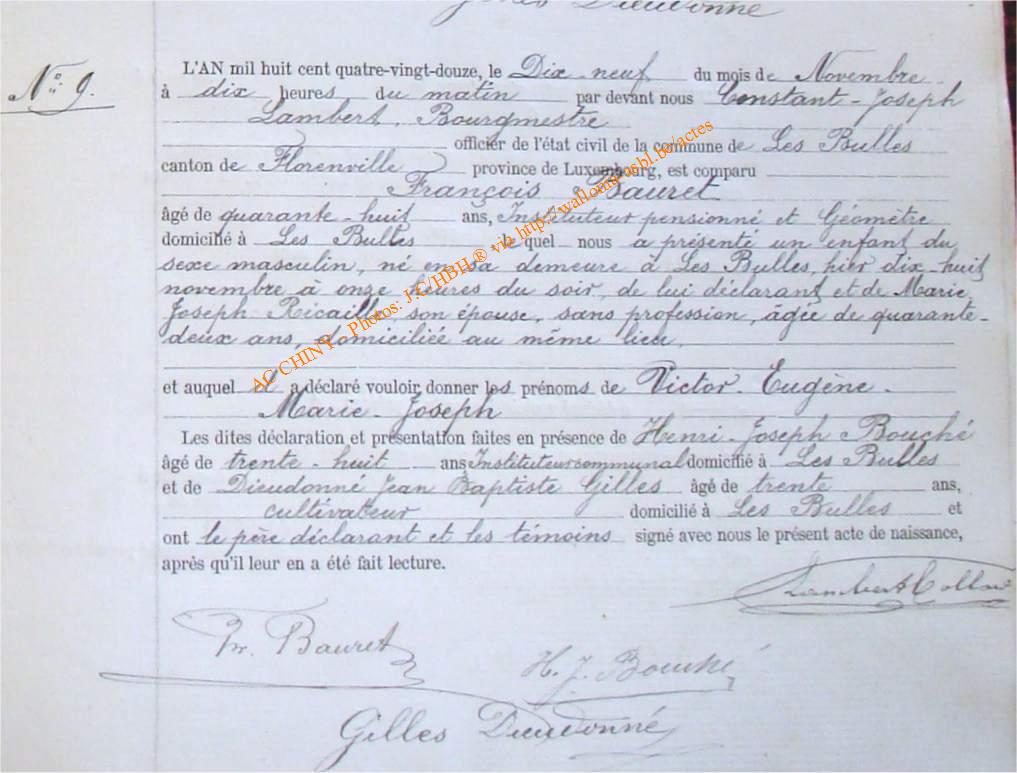 Gilles Dieudonné
N° 9.
L'AN mil huit cent quatre-vingt-douze, le Dix-neuf du mois de Novembre
à dix heures du matin par devant nous Constant-Joseph
Lambert, Bourgmestre
officier de l'état civil de la commune de Les Bulles
canton de Florenville province de Luxembourg, est comparu
François Bauret
âgé de quarante-huit ans, Instituteur pensionné et Géomètre
domicilié à Les Bulles lequel nous a présenté un enfant du
sexe masculin, né en sa demeure à Les Bulles, hier dix-huit
novembre à onze heures du soir, de lui déclarant et de Marie
Joseph Ricaille, son épouse, sans profession, âgée de quarante-
deux ans, domiciliée au même lieu.
et auquel il a déclaré vouloir donner les prénoms de Victor-Eugène-
Marie-Joseph
Les dites déclaration et présentation faites en présence de Henri-Joseph Bouché
âgé de trente-huit ans Instituteur communal domicilié à Les Bulles
et de Dieudonné Jean Baptiste Gilles âgé de trente ans,
cultivateur domicilié à Les Bulles et
ont le père déclarant et les témoins signé avec nous le présent acte de naissance,
après qu'il leur en a été fait lecture.
Lambert
Fr. Bauret
H. J. Bouché
Gilles Dieudonné
AC CHINY - Photos: J.C/HBH ® via http://wallonia-asbl.be/actes